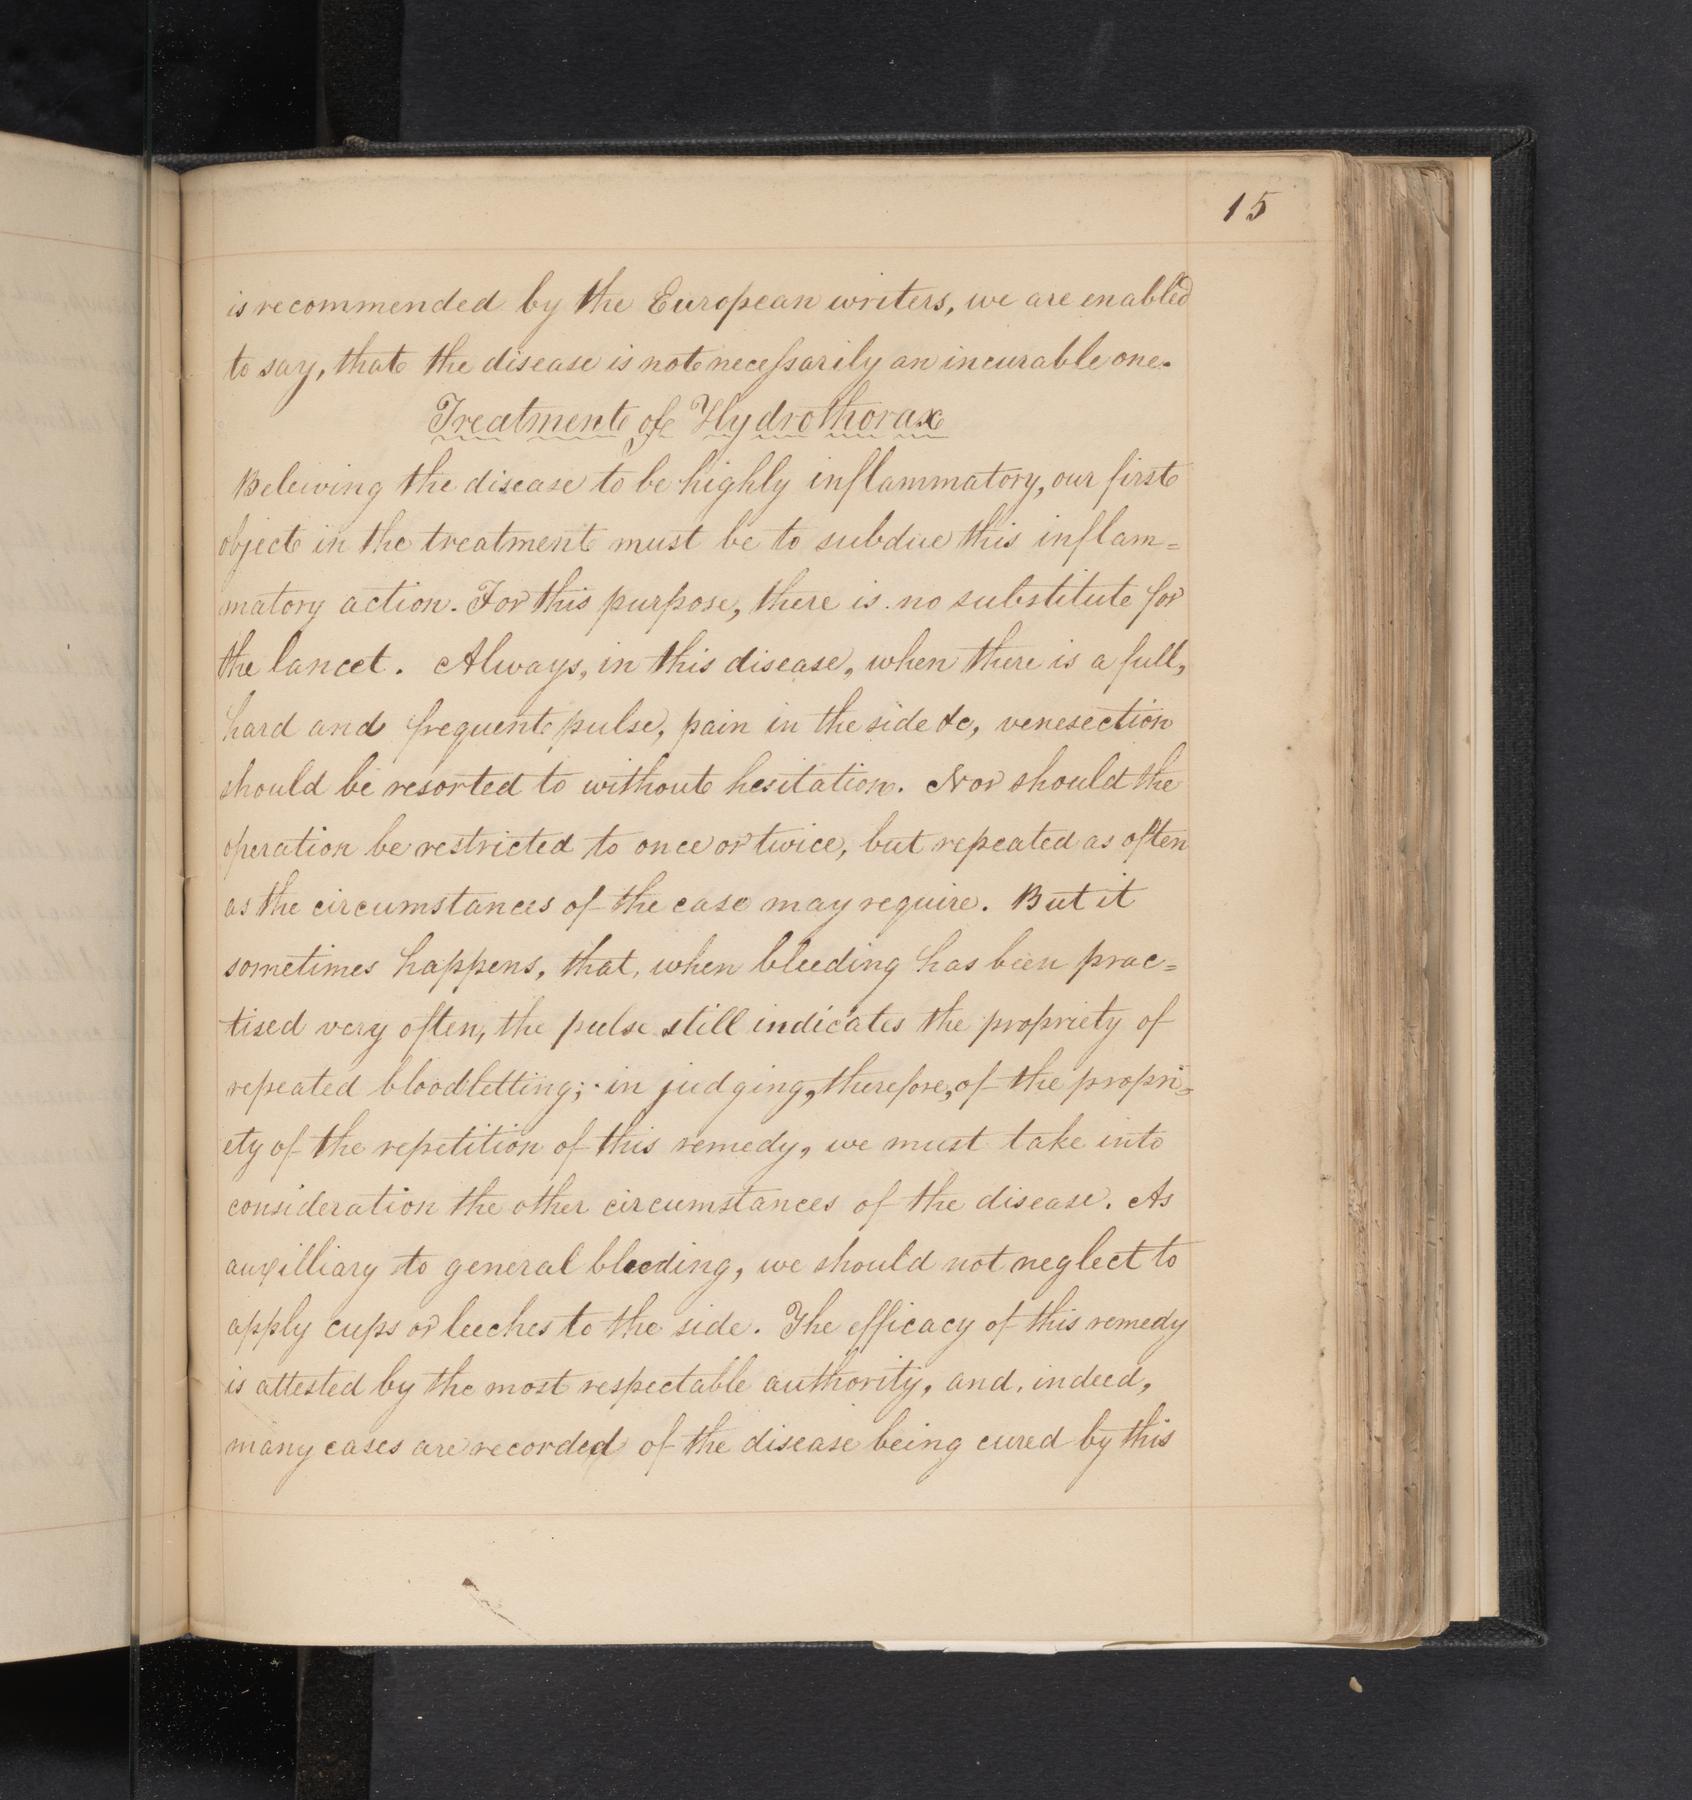 15
is recommended by the European writers, we are enabled
to say, that the disease is not necessarily an incurable one.
Treatment of Hydrothorax
Beleiving the disease to be highly inflammatory, our first
object in the treatment must be to subdue this inflam=
matory action. For this purpose, there is no substitute for
the lancet. Always, in this disease, when there is a full,
hard and frequent pulse, pain in the side &c, venesection
should be resorted to without hesitation. Nor should the
operation be restricted to once or twice, but repeated as often
as the circumstances of the case may require. But it
sometimes happens, that, when bleeding has been prac=
tised very often, the pulse still indicates the propriety of
repeated bloodletting; in judging, therefore, of the propri=
ety of the repetition of this remedy, we must take into
consideration the other circumstances of the disease. As
auxilliary to general bleeding, we should not neglect to
apply cups or leeches to the side. The efficacy of this remedy
is attested by the most respectable authority, and, indeed,
many cases are recorded of the disease being cured by this